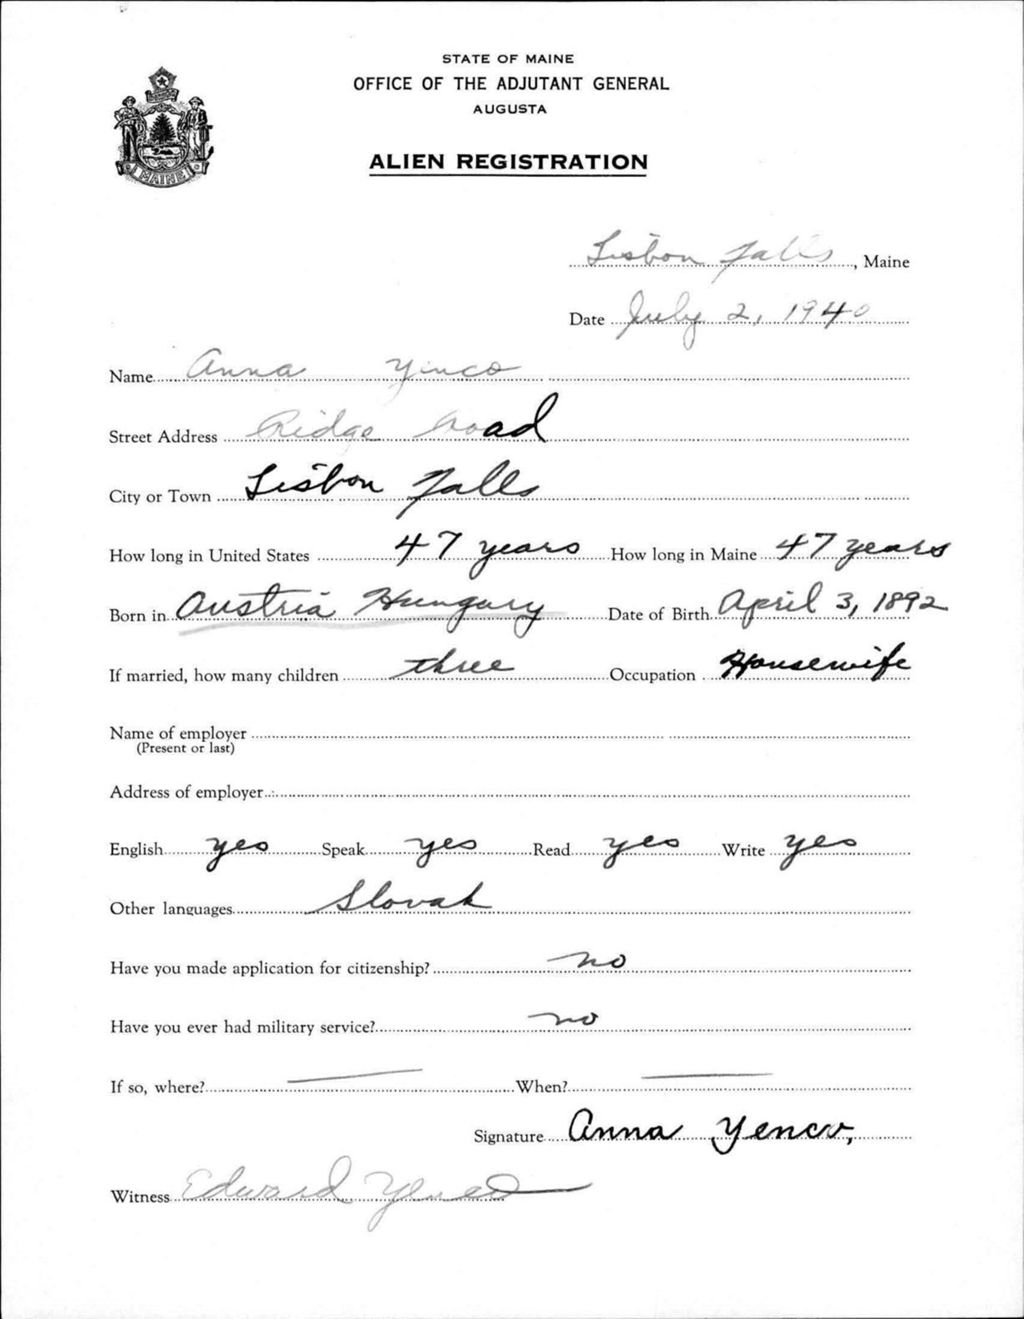 STATE OF MAINE
OFFICE OF THE ADJUTANT GENERAL
AUGUSTA
ALIEN REGISTRATION
MAINE
Lisbon Falls, Maine
Date July 2, 1940
Name Anna Yenco
Street Address Ridge Road
City or Town Lisbon Falls
How long in United States 47 years How long in Maine 47 years
Born in Austria Hungary Date of Birth April 3, 1892
If married, how many children three Occupation Housewife
Name of employer
(Present or last)
Address of employer
English yes Speak yes Read yes Write yes
Other languages Slovak
Have you made application for citizenship? no
Have you ever had military service? no
If so, where? — When? —
Signature Anna Yenco,
Witness Edward Yenco